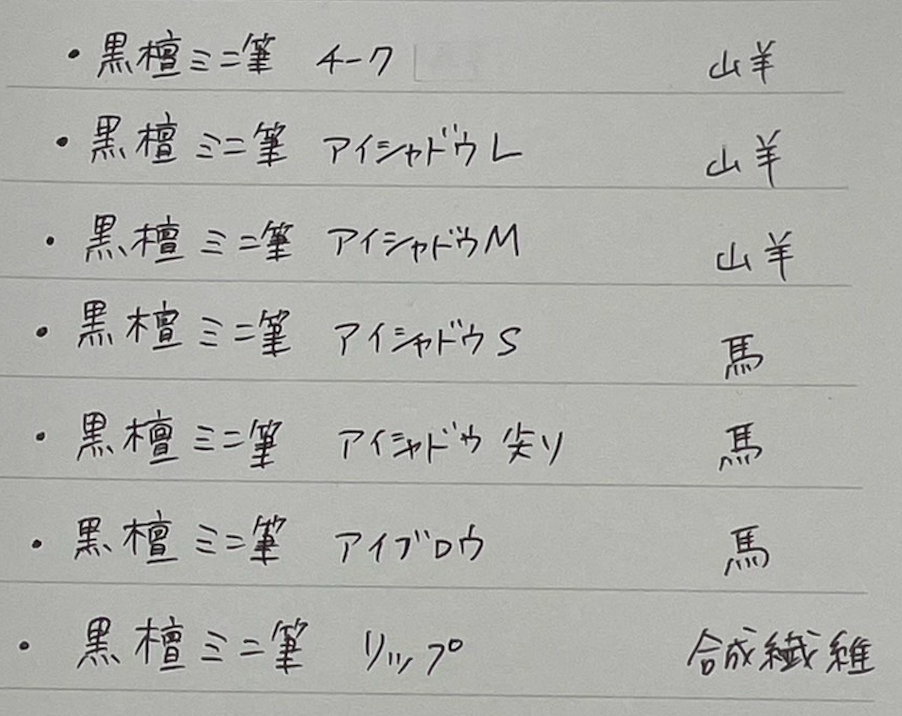 ・黒檀ミニ筆 チーク 山羊
・黒檀ミニ筆 アイシャドウL 山羊
・黒檀ミニ筆 アイシャドウM 山羊
・黒檀ミニ筆 アイシャドウS 馬
・黒檀ミニ筆 アイシャドウ尖り 馬
・黒檀ミニ筆 アイブロウ 馬
・黒檀ミニ筆 リップ 合成繊維